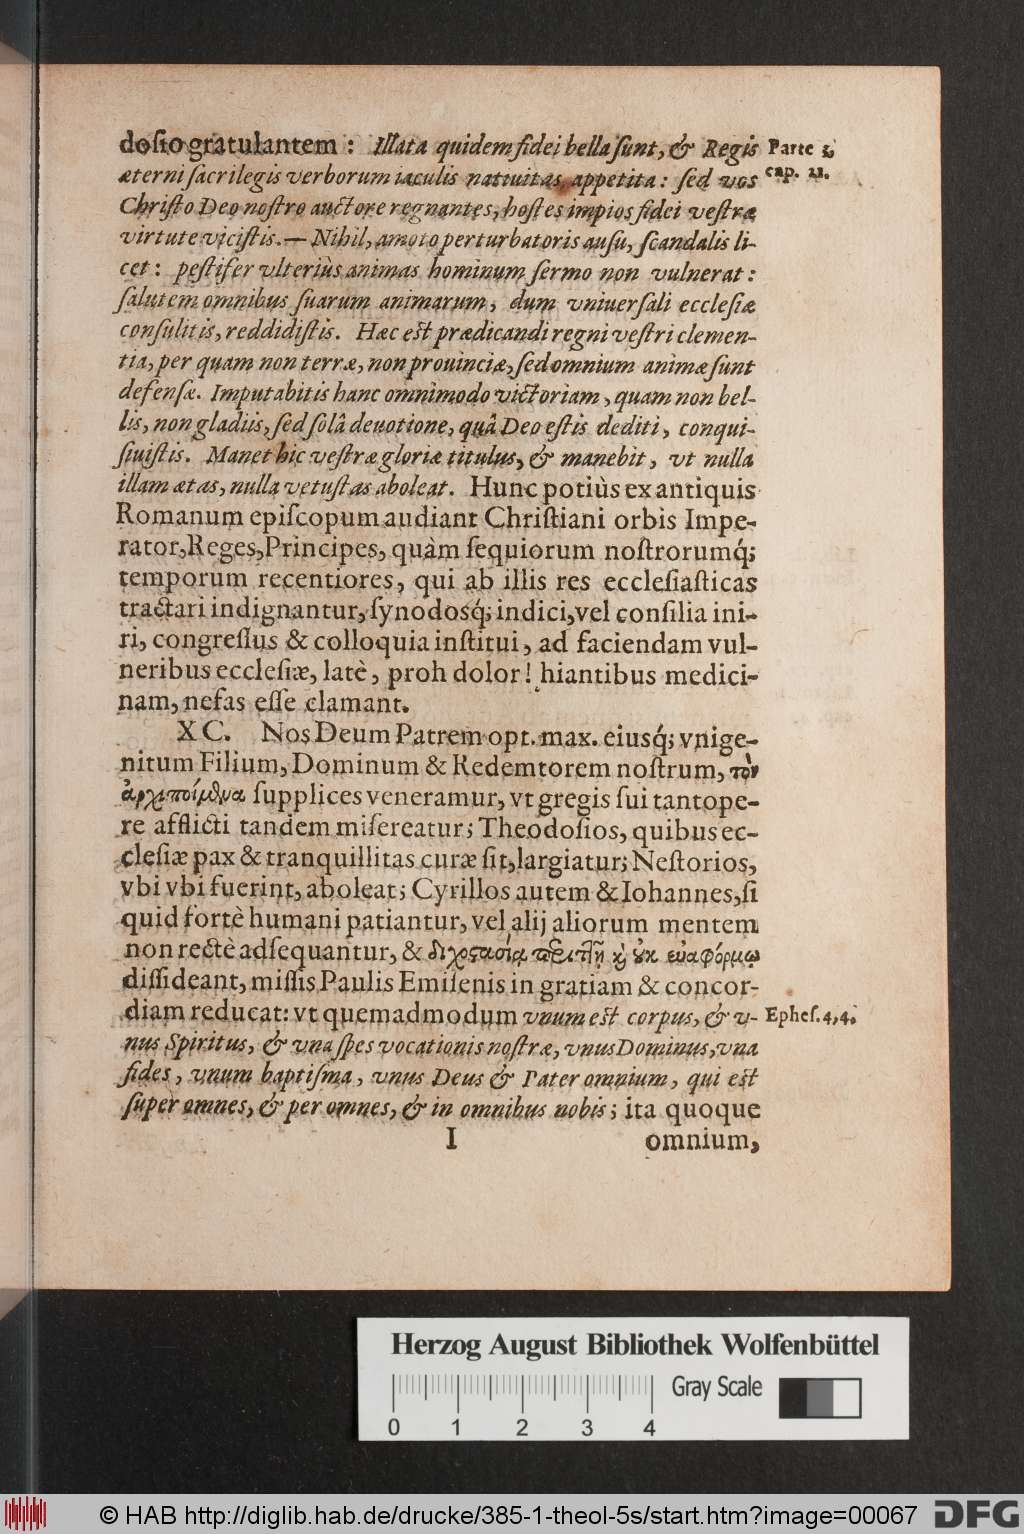 dosio gratulantem : Illata quidem fidei bella sunt, & Regis
Parte 3.
æterni sacrilegis verborum iaculis natiuitas appetita: sed vos
cap. 21.
Christo Deo nostro auctore regnantes, hostes impios fidei vestræ
virtute vicistis.— Nihil, amoto perturbatoris ausu, scandalis li-
cet: pestifer vlteriùs animas hominum sermo non vulnerat:
salutem omnibus suarum animarum, dum vniuersali ecclesiæ
consulitis, reddidistis. Hæc est prædicandi regni vestri clemen-
tia, per quam non terræ, non prouinciæ, sed omnium animæ sunt
defensæ. Imputabitis hanc omnimodo victoriam, quam non bel-
lis, non gladiis, sed solâ deuotione, quâ Deo estis dediti, conqui-
siuistis. Manet hic vestræ gloriæ titulus, & manebit, vt nulla
illam ætas, nulla vetustas aboleat. Hunc potiùs ex antiquis
Romanum episcopum audiant Christiani orbis Impe-
rator, Reges, Principes, quàm sequiorum nostrorumq́;
temporum recentiores, qui ab illis res ecclesiasticas
tractari indignantur, synodosq́; indici, vel consilia ini-
ri, congressus & colloquia institui, ad faciendam vul-
neribus ecclesiæ, latè, proh dolor! hiantibus medici-
nam, nefas esse clamant.
XC. Nos Deum Patrem opt. max. eiusq́; vnige-
nitum Filium, Dominum & Redemtorem nostrum, τὸν
ἀρχιποίμενα supplices veneramur, vt gregis sui tantope-
re afflicti tandem misereatur; Theodosios, quibus ec-
clesiæ pax & tranquillitas curæ sit, largiatur; Nestorios,
vbi vbi fuerint, aboleat; Cyrillos autem & Iohannes, si
quid fortè humani patiantur, vel alij aliorum mentem
non rectè adsequantur, & διχοστασίᾳ περιττῇ καὶ οὐκ εὐαφόρμῳ
dissideant, missis Paulis Emisenis in gratiam & concor-
diam reducat: vt quemadmodum vnum est corpus, & v-
Ephes. 4, 4.
nus Spiritus, & vna spes vocationis nostræ, vnus Dominus, vna
fides, vnum baptisma, vnus Deus & Pater omnium, qui est
super omnes, & per omnes, & in omnibus nobis; ita quoque
I omnium,
Herzog August Bibliothek Wolfenbüttel
Gray Scale
0 1 2 3 4
© HAB http://diglib.hab.de/drucke/385-1-theol-5s/start.htm?image=00067
DFG